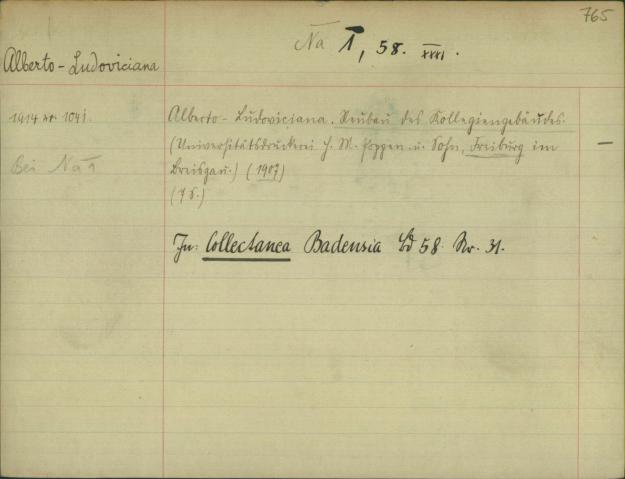 765
Na 1, 58. XXXI.
Alberto-Ludoviciana
1914 1041.
Bei Na 1
Alberto-Ludoviciana. Neubau des Kollegiengebäudes.
(Universitätsdruckerei H. M. Poppen u. Sohn, Freiburg im
Breisgau.) (1907)
(7 S.)
In: Collectanea Badensia Bd 58 Nr. 31.